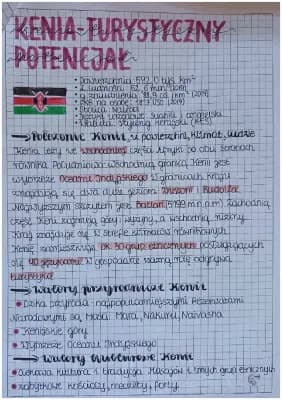 KENIA-TURYSTYCZNY
POTENCJAŁ
• Powierzchnia: 592,0 tyś. km²
• Ludność: 52,6 mln (2019)
• zaludnienia: 88,9 os./km² (2019)
• PKB na osobę: (2019)
• Stolica: Nairobi
• Języki urzędowe: suahili i angielski
• Waluta: szyling kenijski (KES)
Położenie Kenii, jej powierzchnia, klimat, ludzie
Kenia leży we wschodniej części Afryki po obu stronach
równika. Południowo-wschodnią granicą Kenii jest
wybrzeże Oceanu Indyjskiego. W granicach kraju
znajdują się dwa duże jeziora: Wiktorii i Rudolfa.
Najwyższym szczytem jest Batian (5199 m n.p.m.) Zachodnią
część Kenii zajmują góry i wyżyny, a wschodnią niziny.
Kraj znajduje się w strefie klimatów równikowych.
Kenię zamieszkuje ok. 30 grup etnicznych posługujących
się 40 językami. W gospodarce ważną rolę odgrywa
turystyka.
Walory przyrodnicze Kenii
• Dzika przyroda - najpopularniejszymi Rezerwatami
Narodowymi są: Masai Mara, Nakuru, Naivasha
• Kenijskie góry
• Wybrzeże Oceanu Indyjskiego
Walory kulturowe Kenii
• ciekawa kultura i tradycja Masajów i innych grup etnicznych
• zabytkowe kościoły, meczety, forty